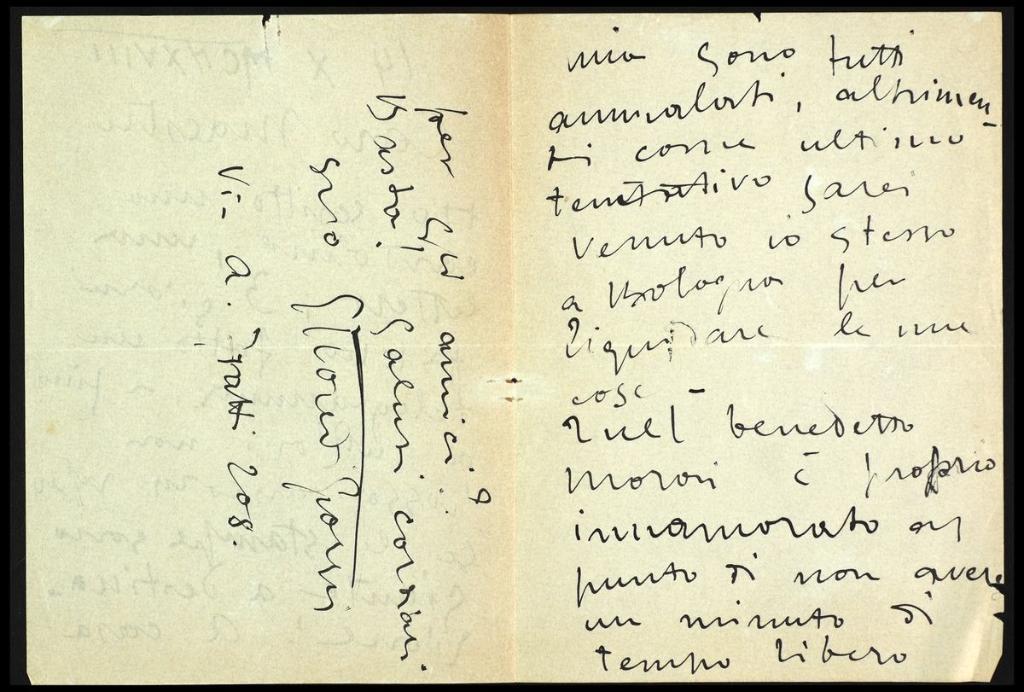 mia sono tutti
ammalati, altrimen-
ti come ultimo
tentativo sarei
venuto io stesso
a Bologna per
liquidare le mie
cose –
Quel benedetto
Moroni è proprio
innamorato al
punto di non avere
un minuto di
tempo libero
per gli amici..?
Basta! Saluti cordiali.
suo
V. A. Gatti 208.